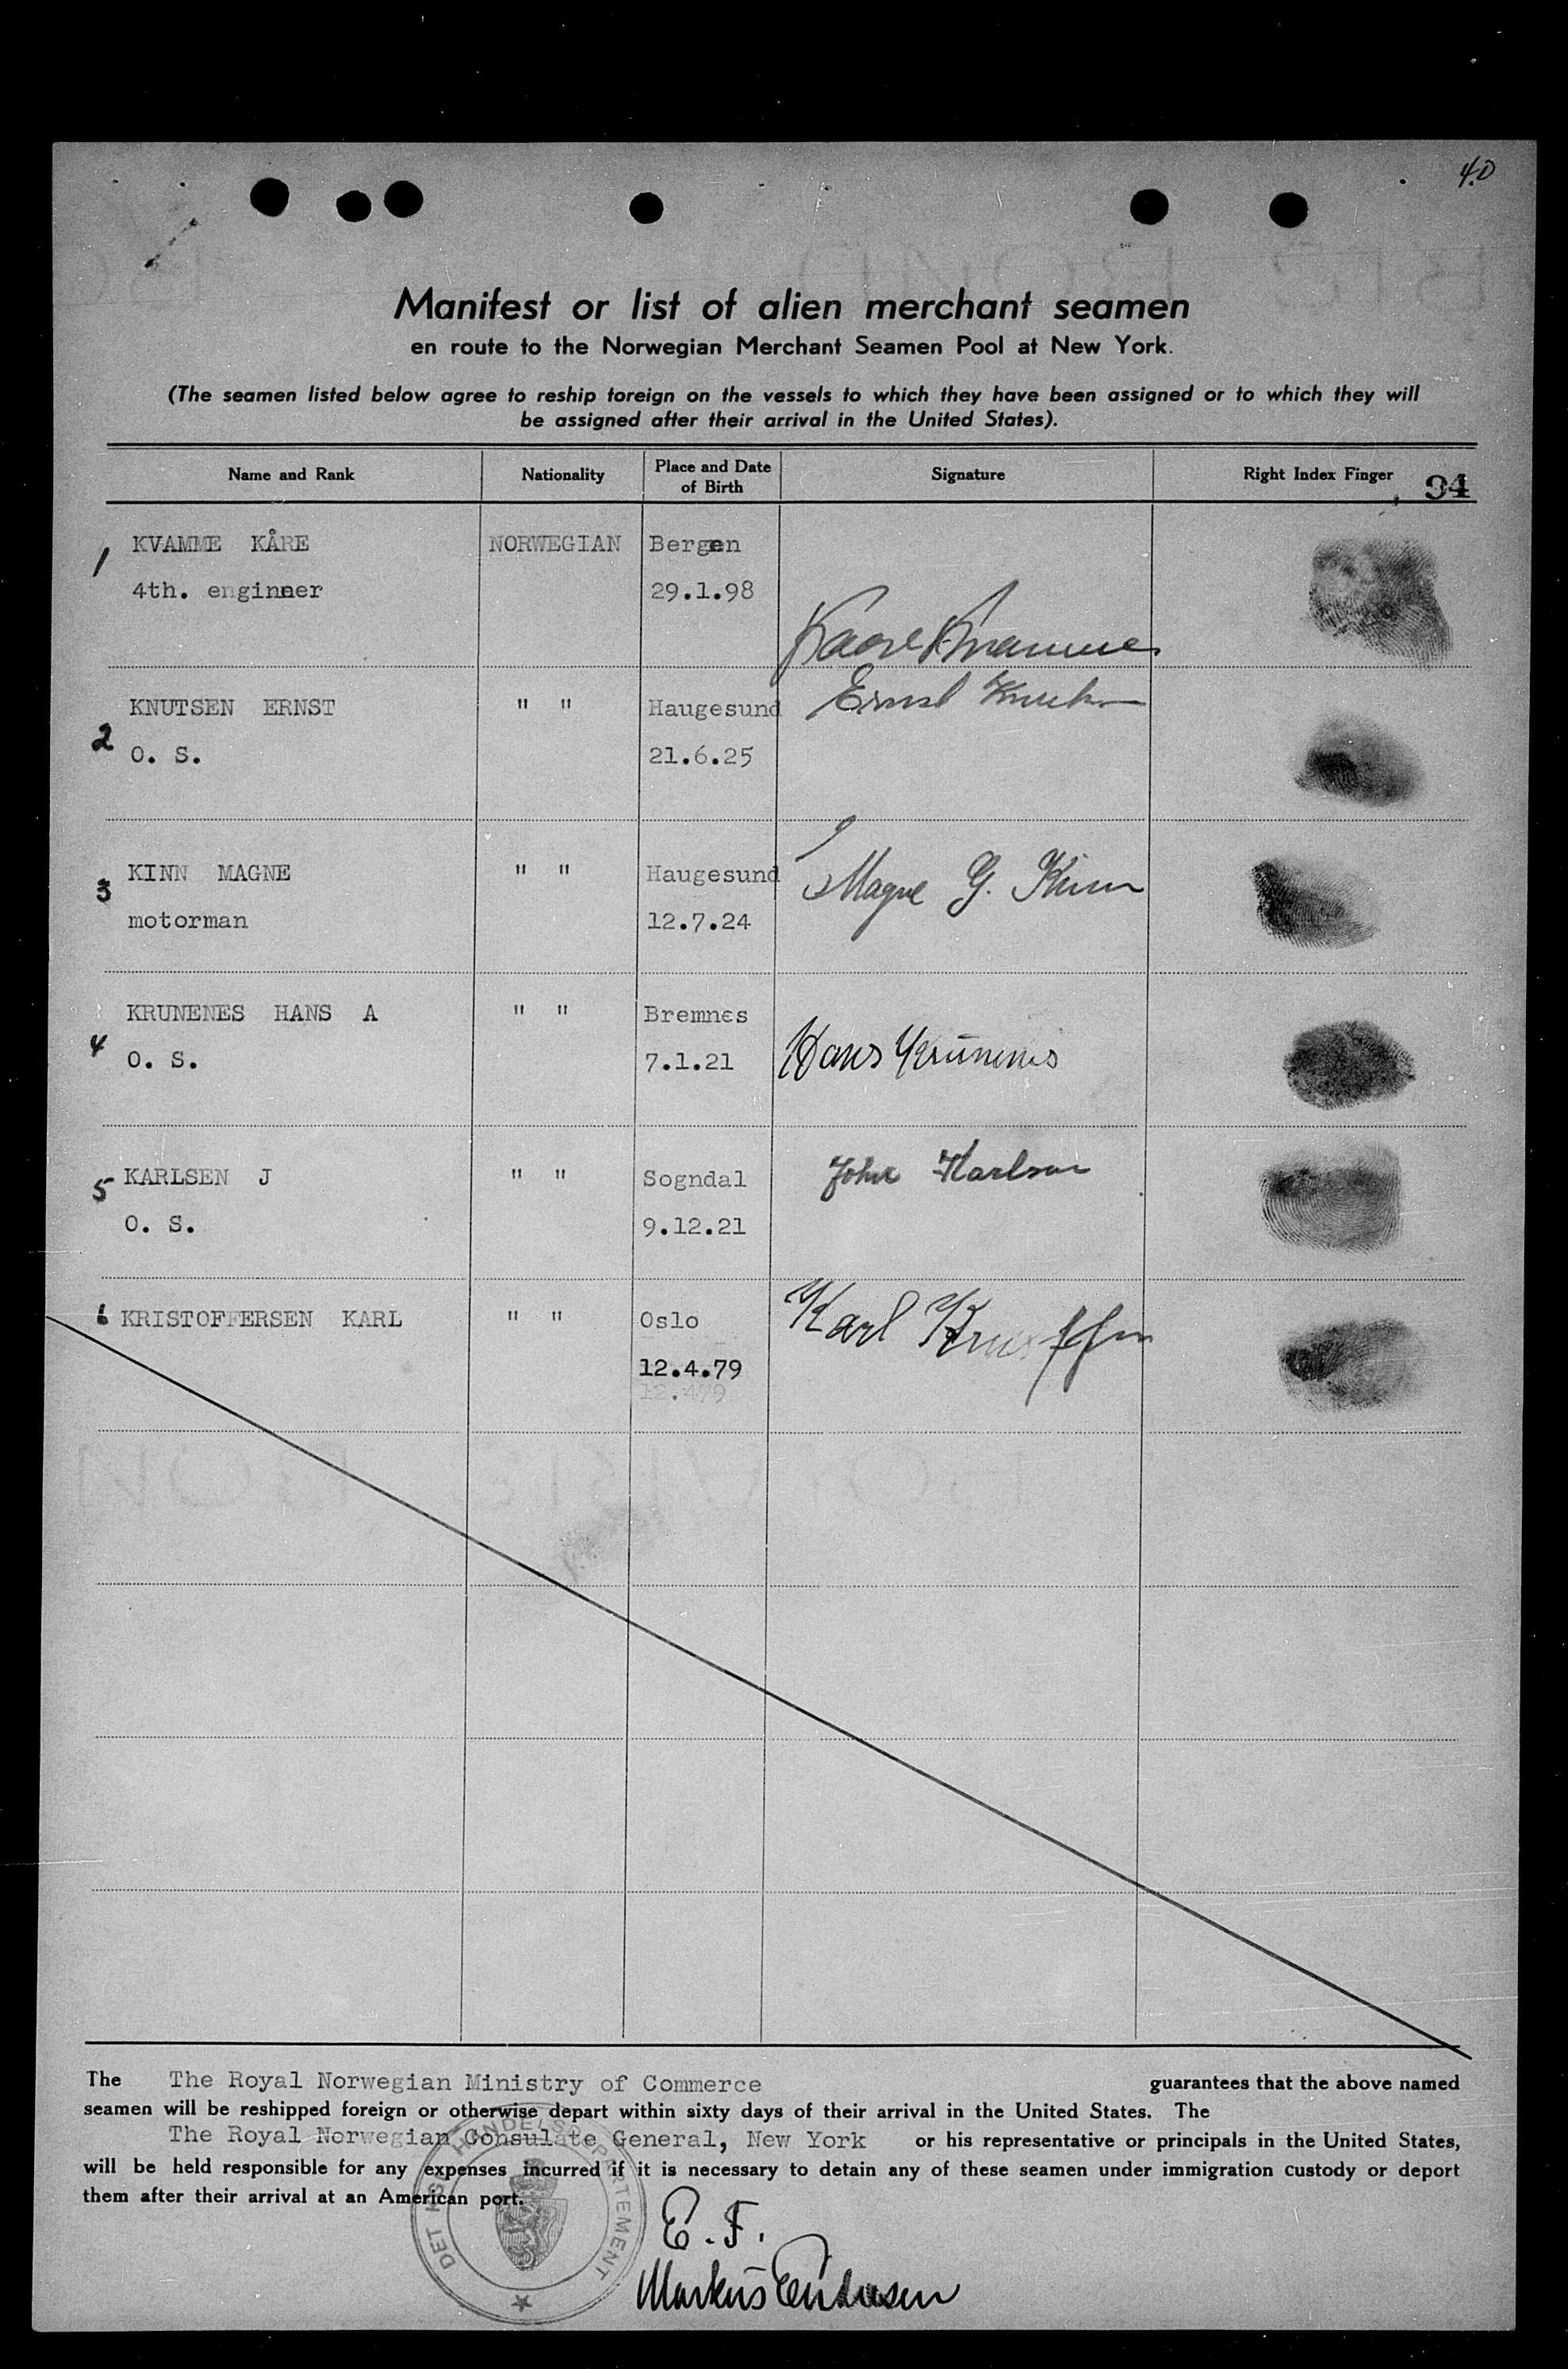 40
Manifest or list of alien merchant seamen
en route to the Norwegian Merchant Seamen Pool at New York.
(The seamen listed below agree to reship foreign on the vessels to which they have been assigned or to which they will
be assigned after their arrival in the United States).
Name and Rank Nationality Place and Date of Birth Signature Right Index Finger 94
1 KVAMME KÅRE NORWEGIAN Bergen
4th. enginner 29.1.98
Kaare Kvamme
KNUTSEN ERNST " " Haugesund Ernst Knutsen
2 O. S. 21.6.25
3 KINN MAGNE " " Haugesund Magne G. Kinn
motorman 12.7.24
KRUNENES HANS A " " Bremnes
4 O. S. 7.1.21 Hans Krunenes
5 KARLSEN J " " Sogndal John Karlsen
O. S. 9.12.21
6 KRISTOFFERSEN KARL " " Oslo Karl
12.4.79
12.479
The The Royal Norwegian Ministry of Commerce guarantees that the above named
seamen will be reshipped foreign or otherwise depart within sixty days of their arrival in the United States. The
The Royal Norwegian Consulate General, New York or his representative or principals in the United States,
will be held responsible for any expenses incurred if it is necessary to detain any of these seamen under immigration custody or deport
them after their arrival at an American port.
DET KGL. HANDELSDEPARTEMENT
E. F.
Markus